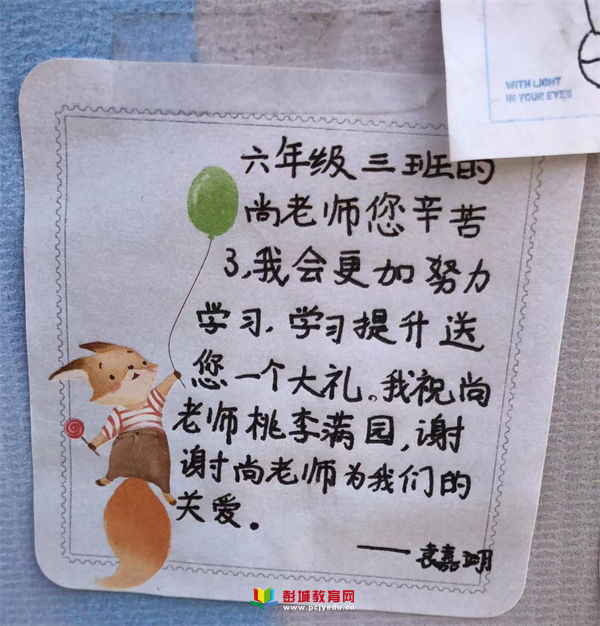 WITH LIGHT
IN YOUR EYES
六年级三班的
尚老师您辛苦
了,我会更加努力
学习.学习提升送
您一个大礼。我祝尚
老师桃李满园,谢
谢尚老师为我们的
关爱。
——袁嘉翊
彭城教育网
www.pcjyedu.cn